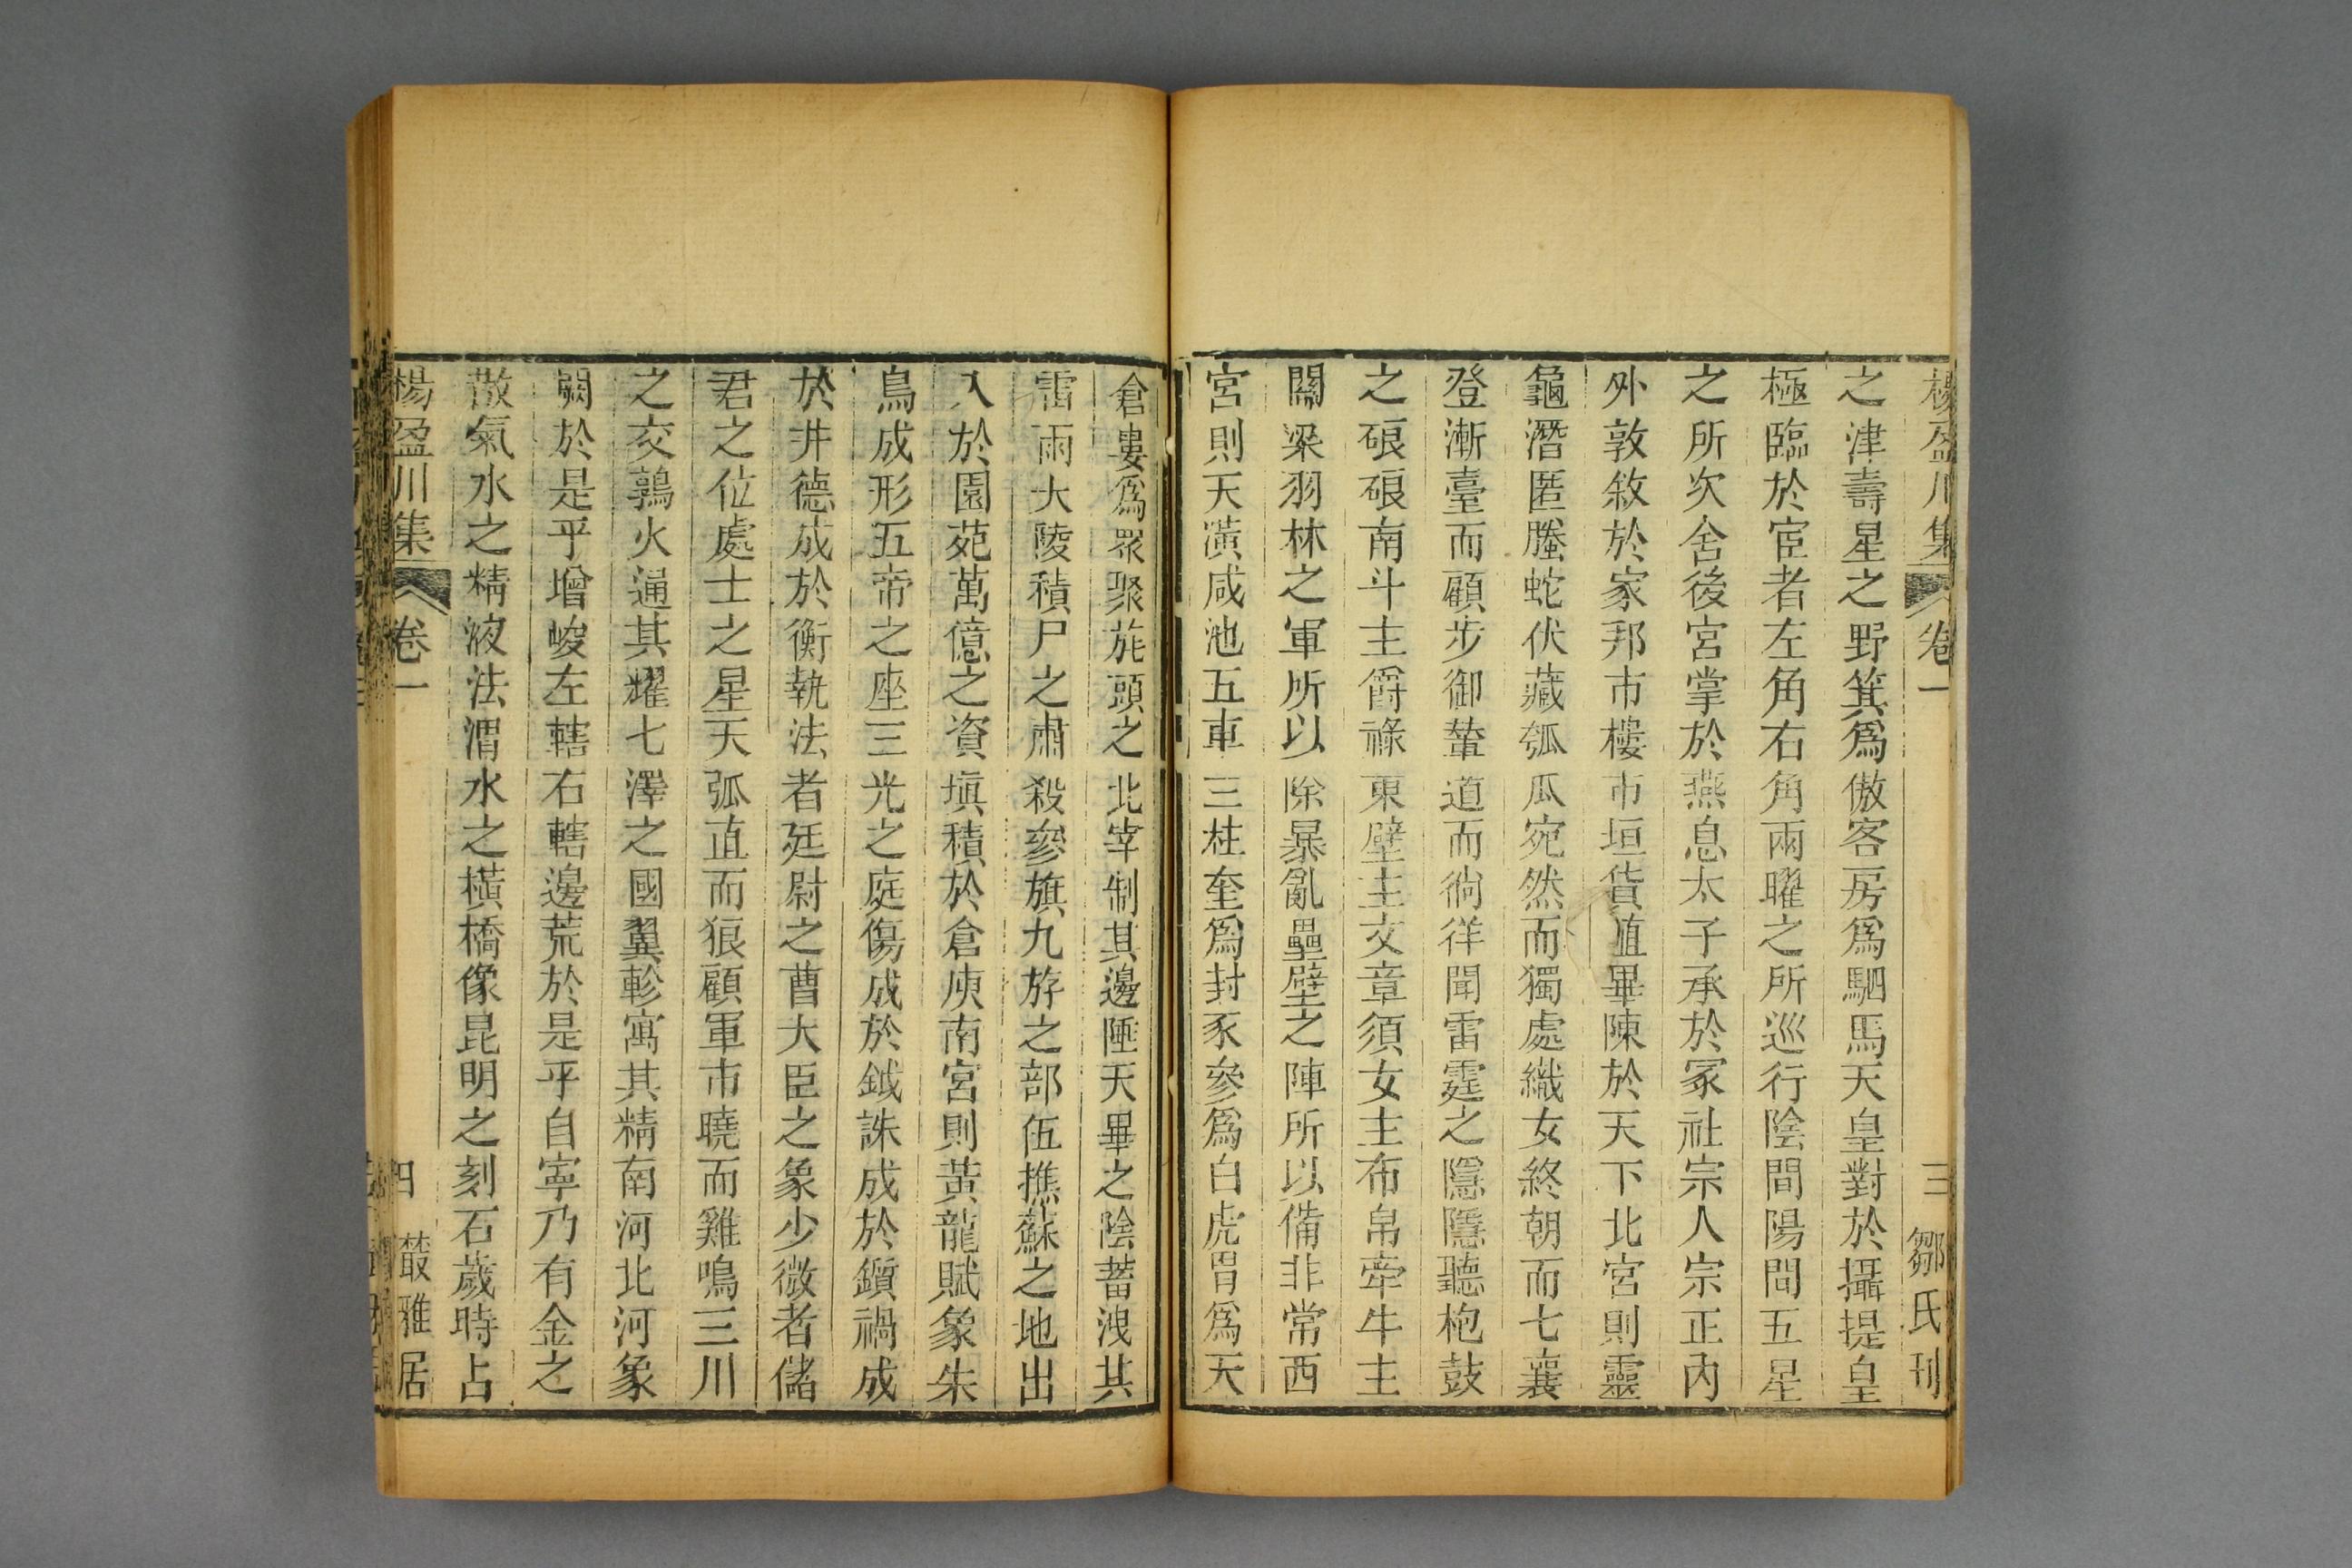 楊盈川集 卷一 三 鄒氏刊
之津壽星之野箕爲傲客房爲駟馬天皇對於攝提皇
極臨於宦者左角右角兩曜之所巡行陰間陽間五星
之所次舍後宮掌於燕息太子承於冢社宗人宗正內
外敦敘於家邦市樓市垣貨殖畢陳於天下北宮則靈
龜潛匿螣蛇伏藏瓠瓜宛然而獨處織女終朝而七襄
登漸臺而顧步御輦道而徜徉聞雷霆之隱隱聽枹鼓
之硠硠南斗主爵祿東壁主文章須女主布帛牽牛主
關梁羽林之軍所以除暴亂壘壁之陣所以備非常西
宮則天潢咸池五車三柱奎爲封豕參爲白虎胃爲天
倉婁爲眾聚旄頭之北宰制其邊陲天畢之陰蓄洩其
雷雨大陵積尸之肅殺參旗九斿之部伍樵蘇之地出
入於園苑萬億之資塡積於倉庾南宮則黃龍賦象朱
鳥成形五帝之座三光之庭傷成於鉞誅成於鑕禍成
於井德成於衡執法者廷尉之曹大臣之象少微者儲
君之位處士之星天弧直而狼顧軍市曉而雞鳴三川
之交鶉火通其耀七澤之國翼軫寓其精南河北河象
闕於是乎增峻左轄右轄邊荒於是乎自寧乃有金之
散氣水之精液法渭水之橫橋像昆明之刻石歲時占
楊盈川集 卷一 四 叢雅居